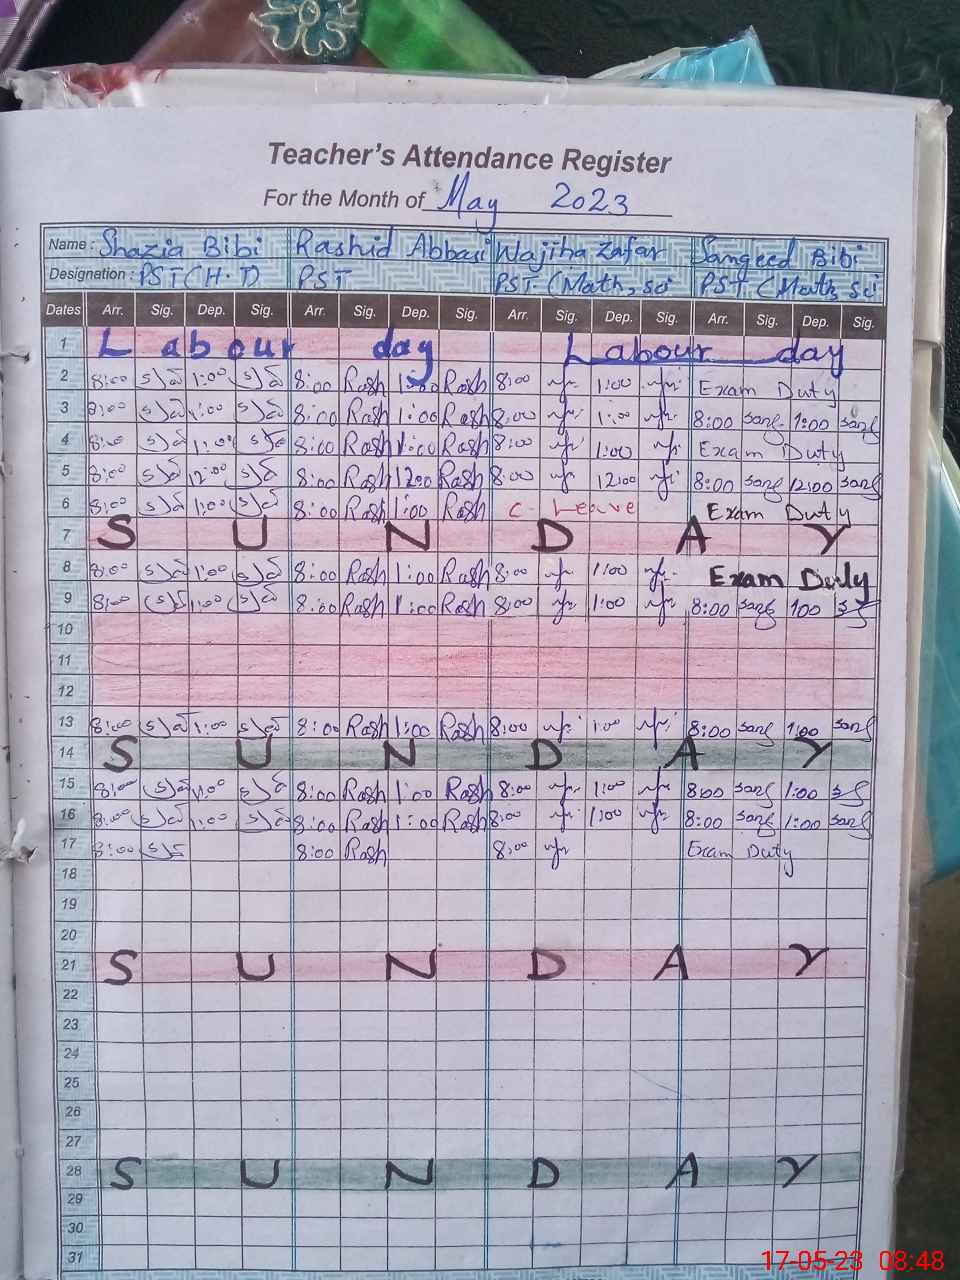 Teacher's Attendance Register
For the Month of May 2023
Name : Shazia Bibi Rashid Abbasi Wajiha Zafar Sangeed Bibi
Designation : PST (H.T) PST PST (Math, sci PST (Math, sci
Dates Arr. Sig. Dep. Sig. Arr. Sig. Dep. Sig. Arr. Sig. Dep. Sig. Arr. Sig. Dep. Sig.
1 Labour day Labour day
2 8:00 1:00 8:00 Rash 1:00 Rash 8:00 1:00 Exam Duty
3 8:00 1:00 8:00 Rash 1:00 Rash 8:00 1:00 8:00 sang 1:00 sang
4 8:00 1:00 8:00 Rash 1:00 Rash 8:00 1:00 Exam Duty
5 8:00 12:00 8:00 Rash 1200 Rash 8:00 12:00 8:00 sang 12:00 sang
6 8:00 1:00 8:00 Rash 1:00 Rash C. Leave Exam Duty
7 S U N D A Y
8 8:00 1:00 8:00 Rash 1:00 Rash 8:00 1:00 Exam Duty
9 8:00 1:00 8:00 Rash 1:00 Rash 8:00 1:00 8:00 sang 100
10
11
12
13 8:00 1:00 8:00 Rash 1:00 Rash 8:00 1:00 8:00 sang 1:00 sang
14 S U N D A Y
15 8:00 1:00 8:00 Rash 1:00 Rash 8:00 1:00 8:00 sang 1:00
16 8:00 1:00 8:00 Rash 1:00 Rash 8:00 1:00 8:00 sang 1:00 sang
17 8:00 8:00 Rash 8:00 Exam Duty
18
19
20
21 S U N D A Y
22
23
24
25
26
27
28 S U N D A Y
29
30
31
17-05-23 08:48